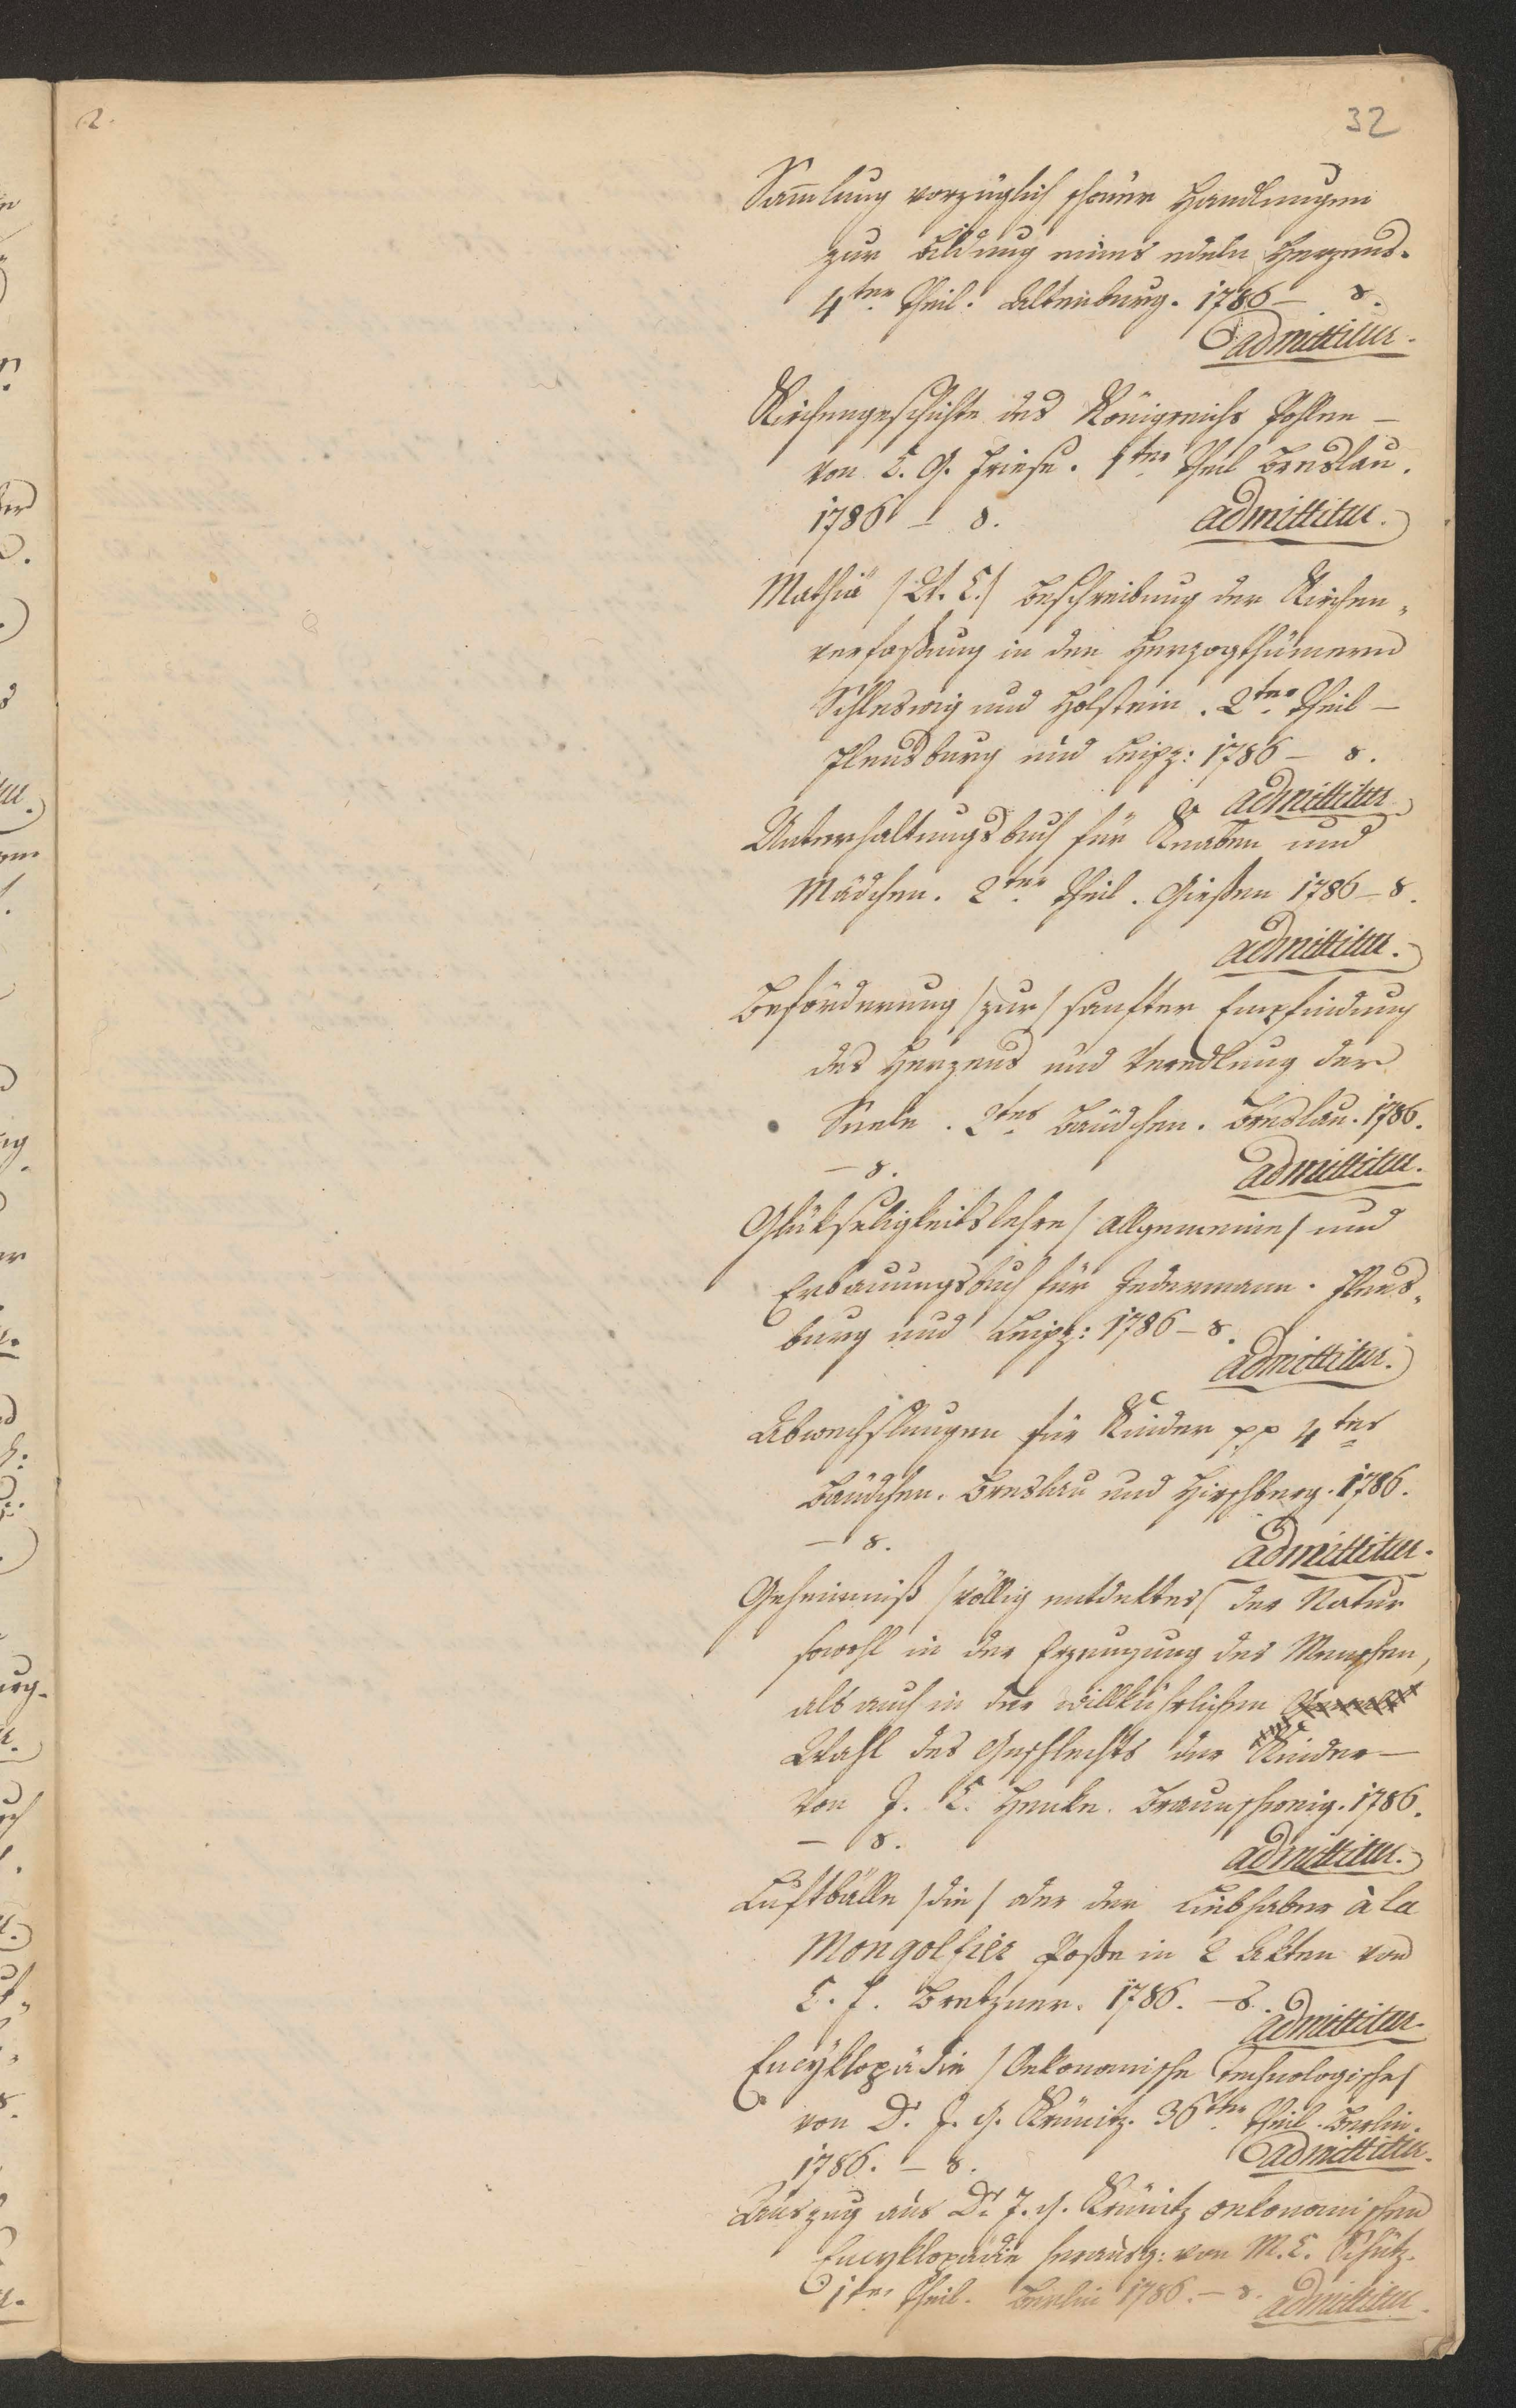 32
Sam̄lung vorzüglich schöner Handlungen
zur Bildung eines edeln Herzens.
4ter Theil. Altenburg. 1786 – 8.
admittitur.
Kirchengeschichte des Königreichs Pohlen –
von C. G. Friese. 1ter Theil Breslau.
1786 – 8. admittitur.
Mathiä /: A. C. / Beschreibung der Kirchen„
verfaßung in den Herzogthümern
Schleswig und Holstein. 2ter Theil –
Flensburg und Leipz: 1786 – 8.
admittitur
Unterhaltungsbuch für Knaben und
Mädchen. 2ter Theil. Gießen 1786 – 8.
admittitur.
Beförderung / zur / sanfter Empfindung
des Herzens und Veredlung der
Seele. 2tes Bändchen. Breslau. 1786.
– 8. admittitur.
Glükseligkeitslehre / allgemeine / und
Erbauungsbuch für Jedermann. Flens„
burg und Leipz: 1786 – 8.
admittitur.
Abwechslungen für Kinder pp 4tes
Bändchen. Breslau und Hirschberg. 1786.
– 8. admittitur.
Geheimniß / völlig entdektes / der Natur
sowohl in der Erzeugung des Menschen,
als auch in der willkührlichen
Wahl des Geschlechts der Kinder –
von J. C. Henke. Braunschweig. 1786.
– 8. admittitur.
Luftbälle / die / oder der Liebhaber à la
Mongolfier Poße in 2 Akten von
C. F. Bretzner. 1786. – 8.
admittitur.
Encyklopädie / Oekonomische Technologische /
von Dr. J. G. Krünitz. 36ter Theil. Berlin.
1786. – 8. admittitur.
Auszug aus Dr. J. G. Krünitz oekonomischen
Encyklopädie herausg: von M. C. Schütz.
1ter Theil. Berlin 1786. – 8. admittitur.